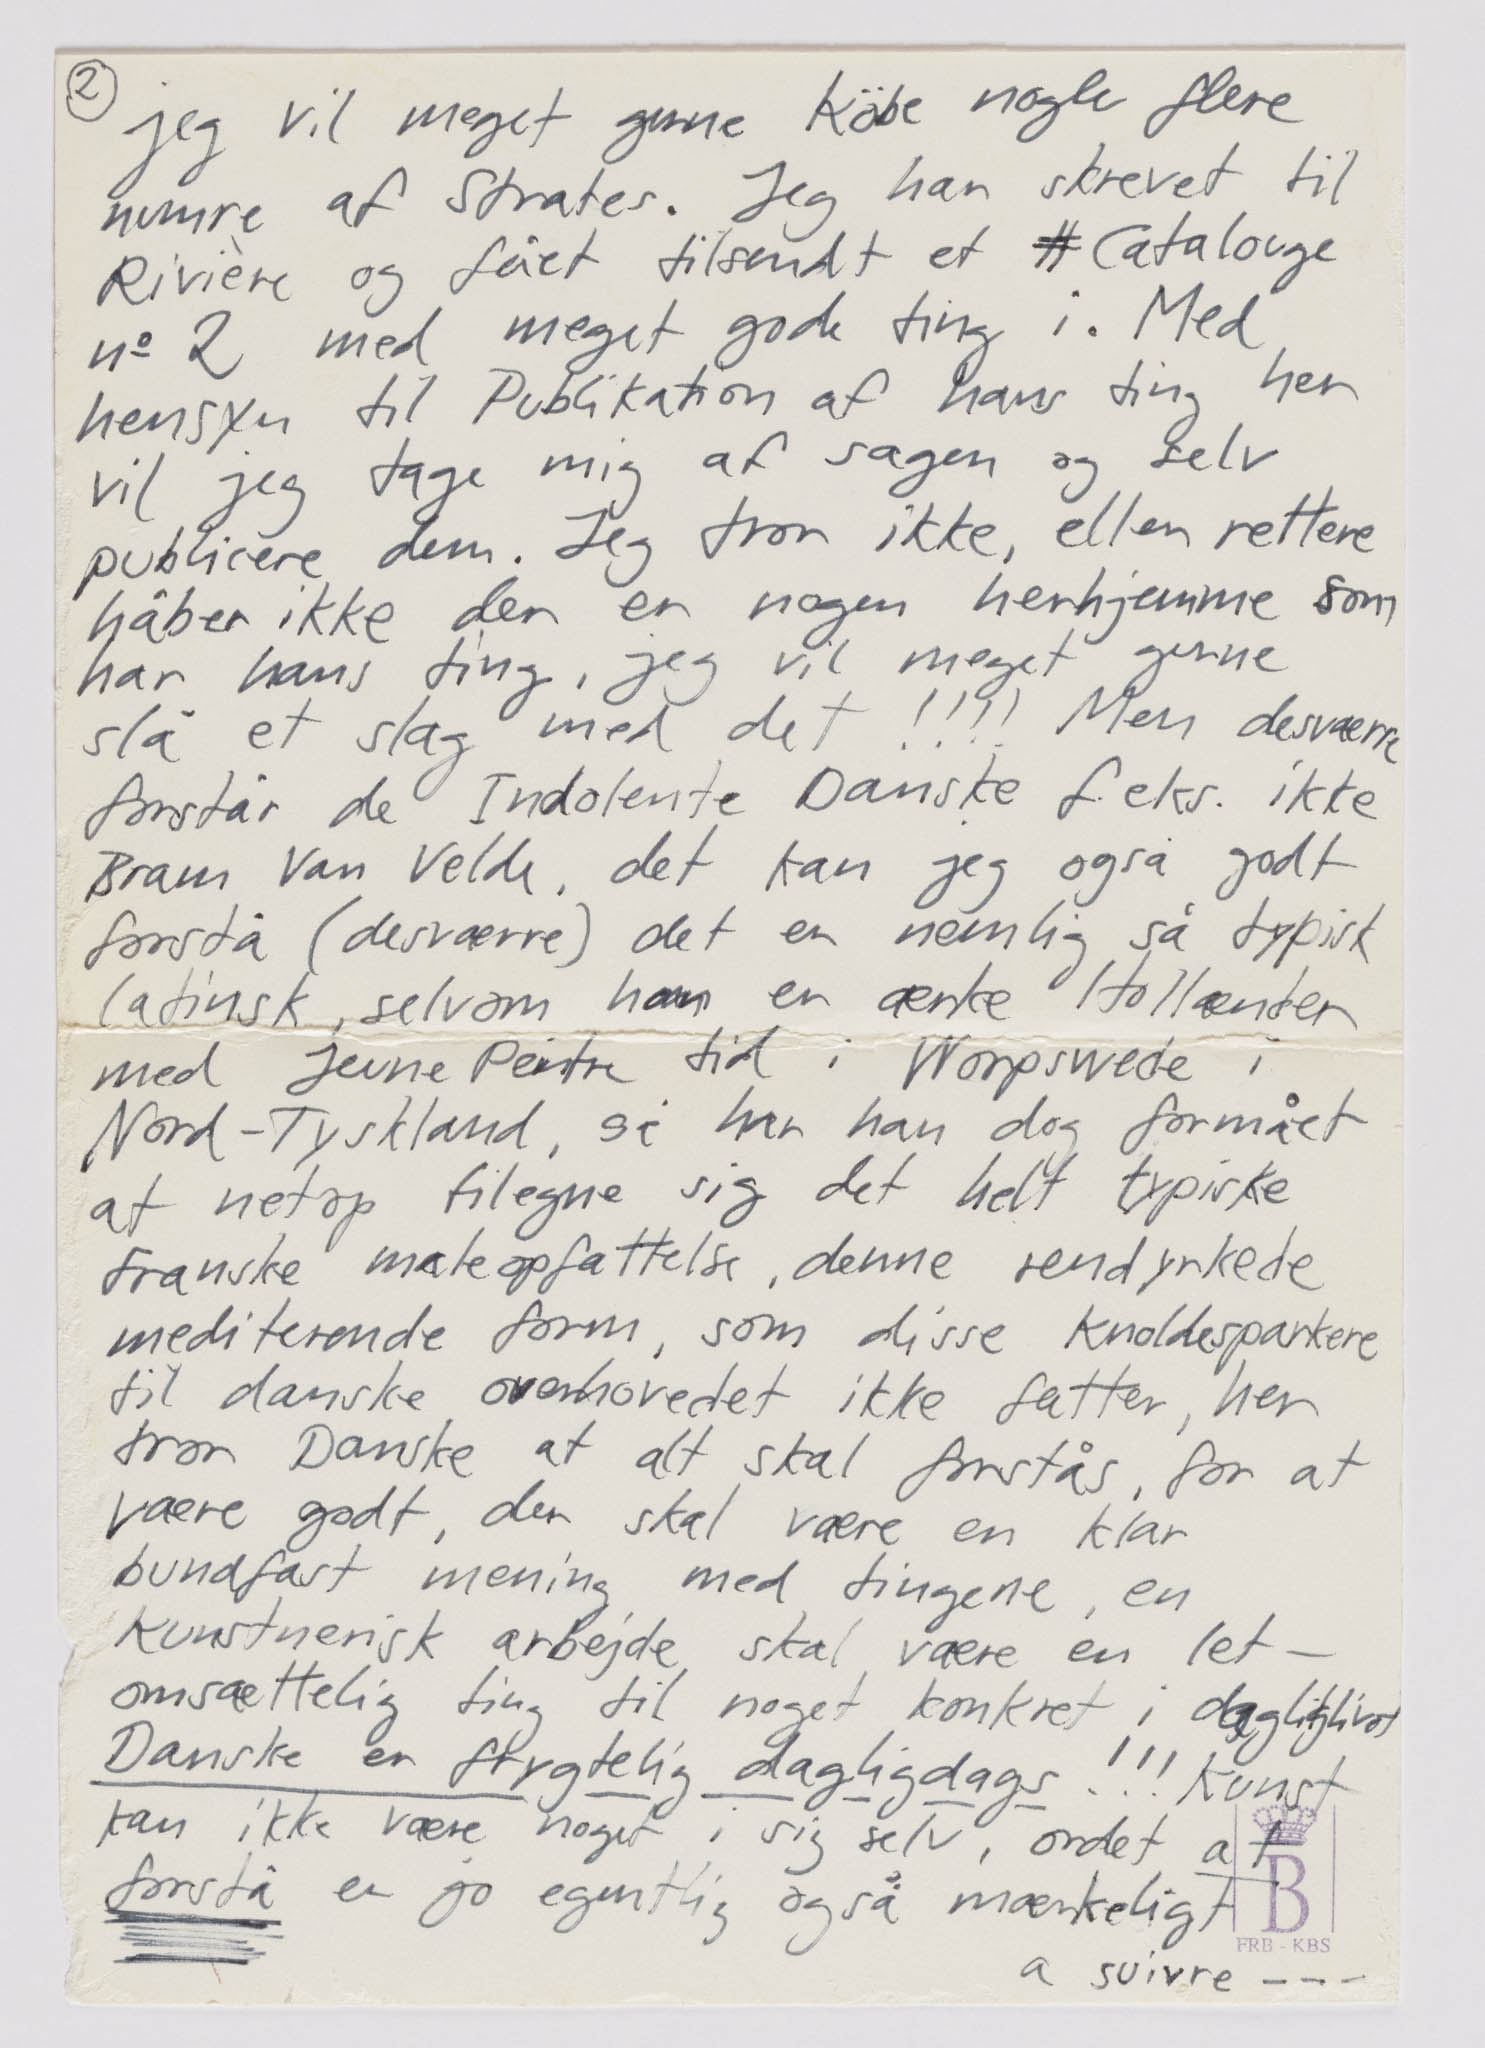 2
jeg vil meget gerne Købe nogle flere
numre af Strates. Jeg har skrevet til
Rivière og fået tilsendt et Catalouge
nº 2 med meget gode ting i. Med
hensyn til Publikation af hans ting her
vil jeg tage mig af sagen og selv
publicere dem. Jeg tror ikke, eller rettere
håber ikke der er nogen herhjemme som
har hans ting, jeg vil meget gerne
slå et slag med det !!!! Men desværre
forstår de Indolente Danske f.eks. ikke
Bram Van Velde, det kan jeg også godt
forstå (desværre) det er nemlig så typisk
latinsk, selvom han er ænke Hollænder
med Jeune Peintre tid i Worpswede i
Nord-Tyskland, så har han dog formået
at netop tilegne sig det helt typiske
franske maleopfattelse, denne rendyrkede
mediterende form, som disse knoldesparkere
til danske overhovedet ikke fatter, her
tror Danske at alt skal forstås, for at
være godt, der skal være en klar
bundfast mening med tingene, en
Kunstnerisk arbejde skal være en let-
omsættelig ting til noget konkret i dagliglivet
Danske er frygtelig dagligdags !!! Kunst
kan ikke være noget i sig selv, ordet at
forstå er jo egentlig også mærkeligt
B
FRB - KBS
a suivre ---